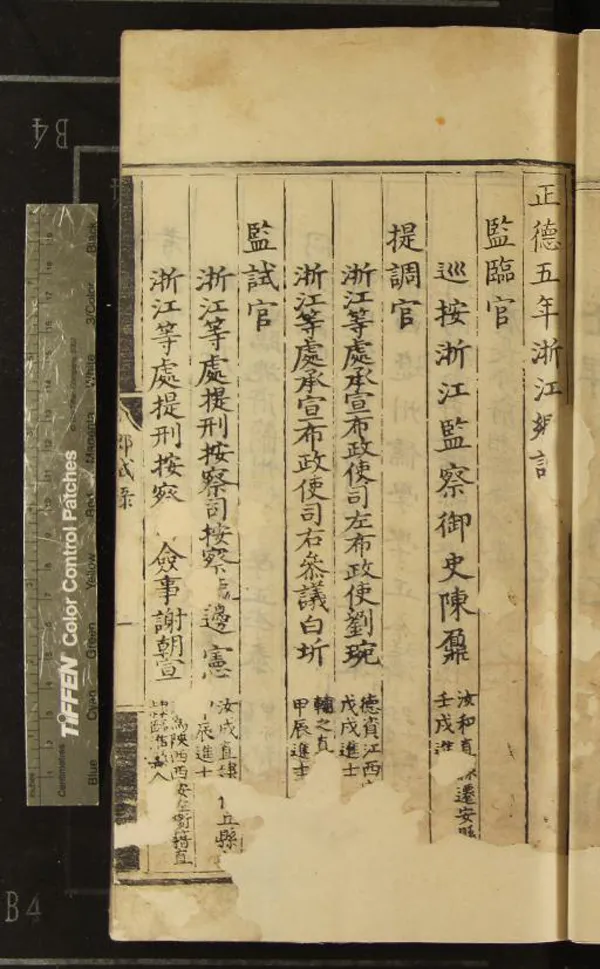 正德五年浙江鄉試
監臨官
巡按浙江監察御史陳鼐
汝和直隸遷安縣
壬戌進
提調官
浙江等處承宣布政使司左布政使劉琬
德賓江西
戊戌進士
浙江等處承宣布政使司右叅議白圻
輔之直
甲辰進士
監試官
浙江等處提刑按察司按察 邊憲
汝成直隸 丘縣
辰進士
浙江等處提刑按察 僉事謝朝宣
陝西西安左衛籍直
人
鄉試錄
一
B4
B4
TIFFEN Color Control Patches
Blue Cyan Green Yellow Red Magenta White 3/Color Black
Centimetres
Inches